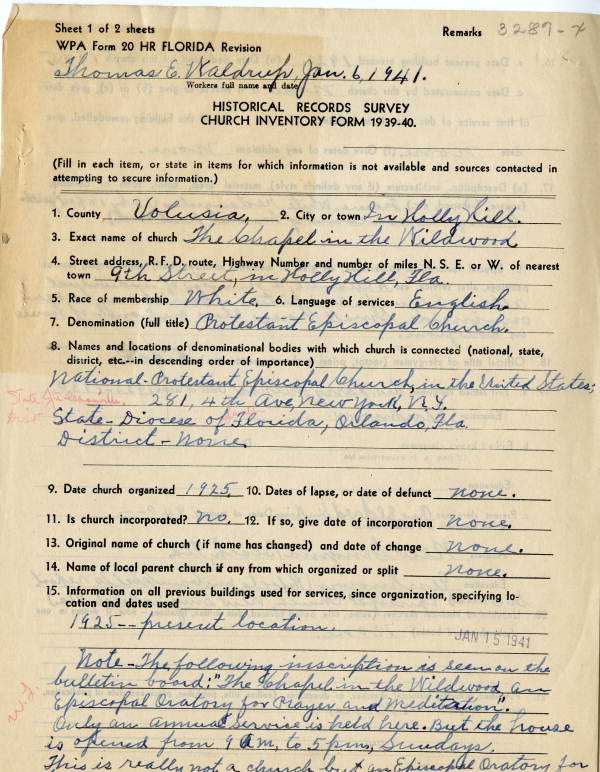 Sheet 1 of 2 sheets
Remarks 3287-x
WPA Form 20 HR FLORIDA Revision
Thomas E. Waldrup, Jan. 6, 1941.
Workers full name and date
HISTORICAL RECORDS SURVEY
CHURCH INVENTORY FORM 1939-40.
(Fill in each item, or state in items for which information is not available and sources contacted in
attempting to secure information.)
1. County Volusia, 2. City or town In Holly Hill.
3. Exact name of church The Chapel in the Wildwood
4. Street address, R. F. D. route, Highway Number and number of miles N. S. E. or W. of nearest
town 9th Street, in Holly Hill, Fla.
5. Race of membership White, 6. Language of services English.
7. Denomination (full title) Protestant Episcopal Church.
8. Names and locations of denominational bodies with which church is connected (national, state,
district, etc.--in descending order of importance)
National-Protestant Episcopal Church, in the United States;
281, 4th Ave, New York, N.Y.
State-Diocese of Florida, Orlando, Fla.
District-None.
9. Date church organized 1925. 10. Dates of lapse, or date of defunct None.
11. Is church incorporated? No. 12. If so, give date of incorporation None.
13. Original name of church (if name has changed) and date of change None.
14. Name of local parent church if any from which organized or split None.
15. Information on all previous buildings used for services since organization, specifying lo-
cation and dates used
1925--present location.
JAN 15 1941
Note-The following inscription is seen on the
bulletin board: "The Chapel in the Wildwood, an
Episcopal Oratory for Prayer and Meditation".
Only an annual service is held here. But the house
is opened from 9 A.m, to 5 p.m, Sundays.
This is really not a church but an Episcopal Oratory for